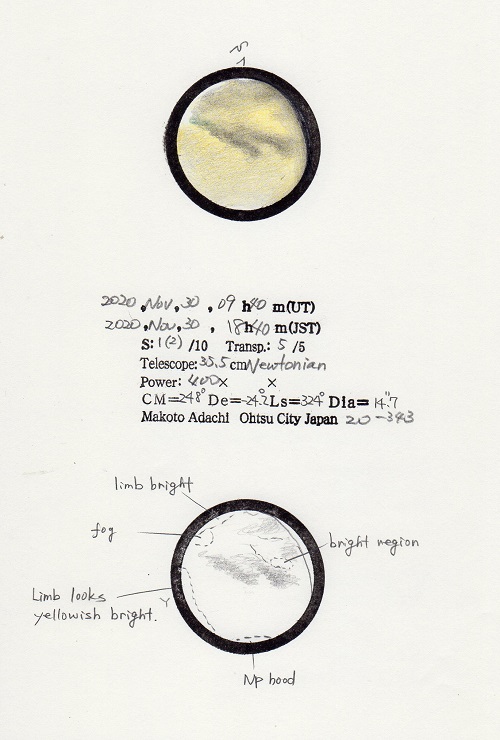 S
2020, Nov, 30, 09 h 40 m (UT)
2020, Nov, 30, 18 h 40 m (JST)
S: 1 (2) /10 Transp.: 5 /5
Telescope: 35.5 cm Newtonian
Power: 400× ×
CM=248° De=-24.2 Ls=324° Dia= 14".7
Makoto Adachi Ohtsu City Japan 20-343
limb bright
fog
bright region
Limb looks
yellowish bright.
Y
Np hood